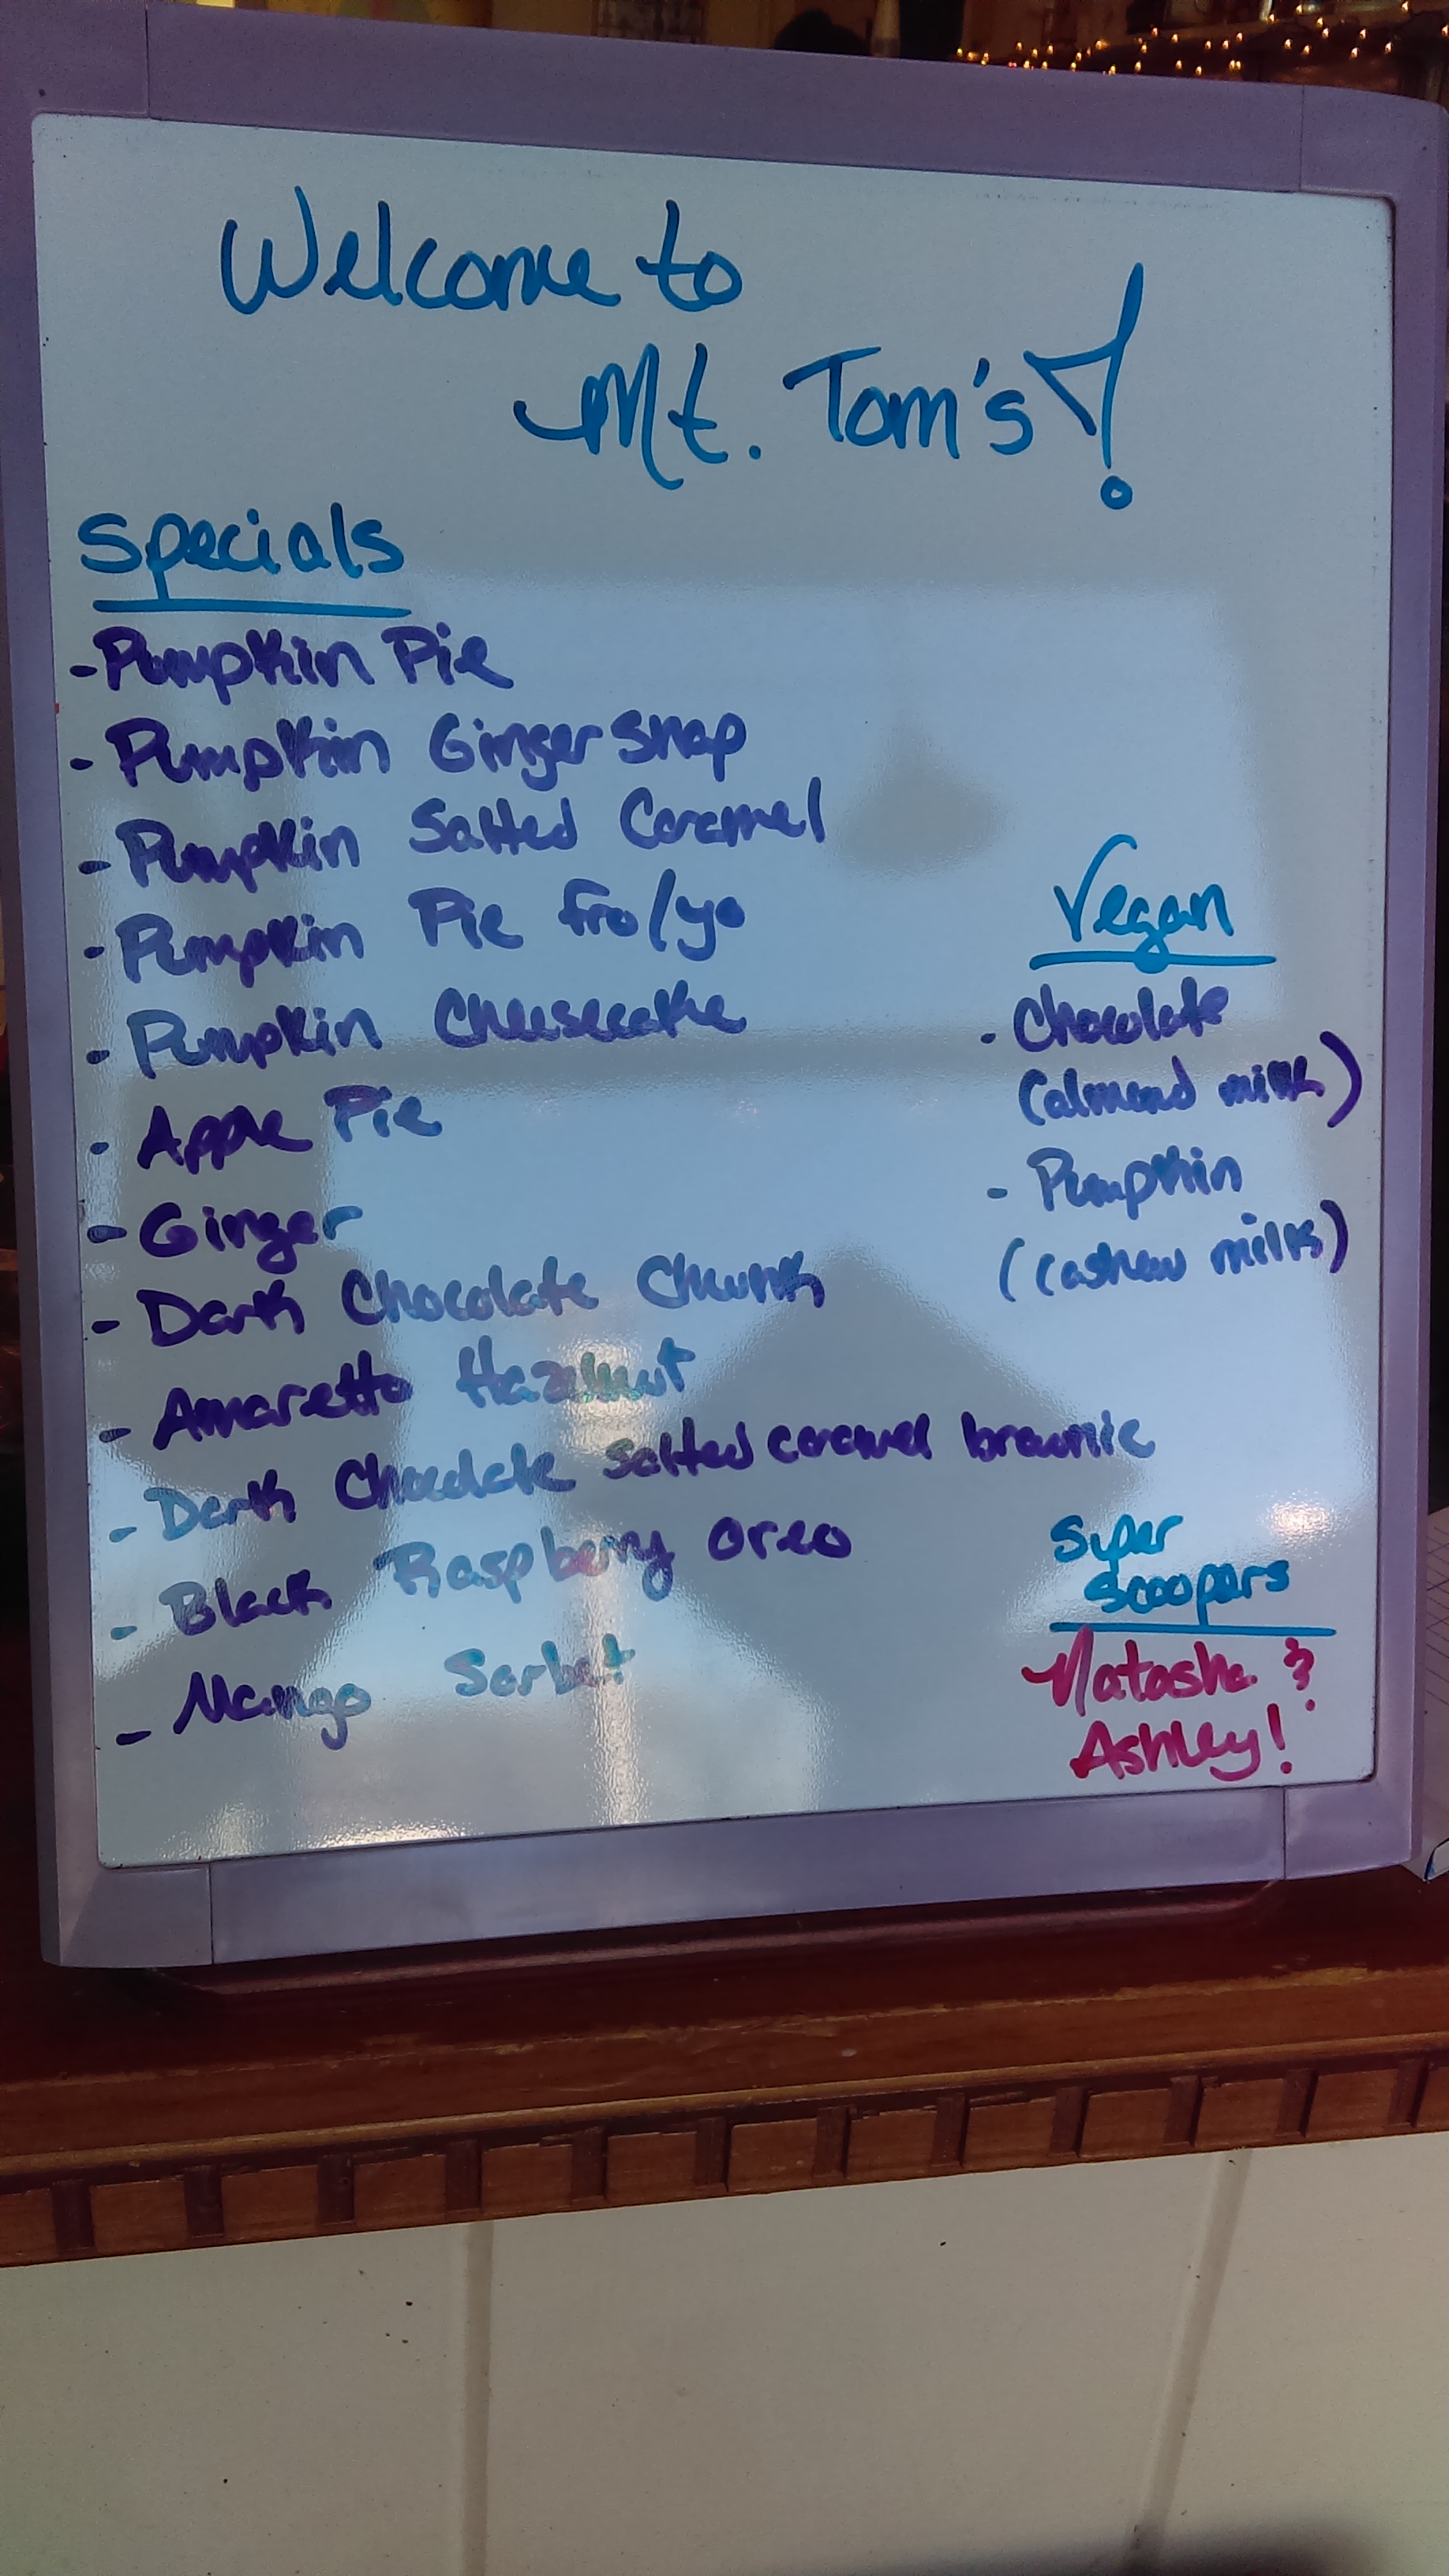 Welcome to
Mt. Tom's!
Specials
- Pumpkin Pie
- Pumpkin Ginger snap
- Pumpkin Salted Caramel
- Pumpkin Pie fro/yo
- Pumpkin Cheesecake
- Apple Pie
- Ginger
- Dark Chocolate Chunk
- Amaretto Hazelnut
- Dark Chocolate salted caramel brownie
- Black Raspberry oreo
- Mango Sorbet
Vegan
- Chocolate
(almond milk)
- Pumpkin
(cashew milk)
Super
Scoopers
Natasha &
Ashley!